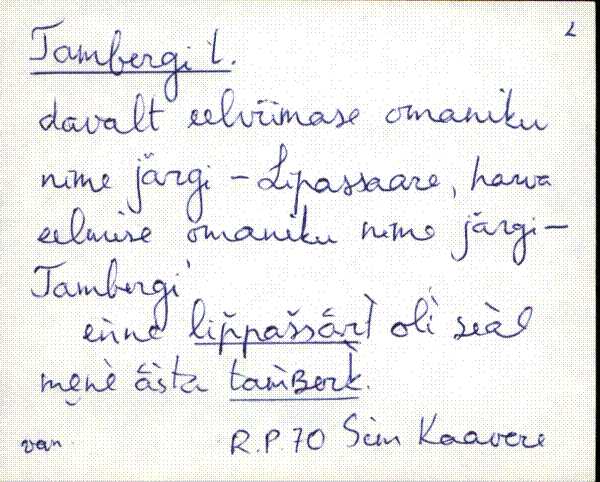 2
Tambergi t.
davalt eelviimase omaniku
nime järgi - Lipassaare, harva
eelmise omaniku nime järgi -
Tambergi
enne lippaššāri oli seàl
menè
tamBerk.
van. R.P.70 Siim Kaavere